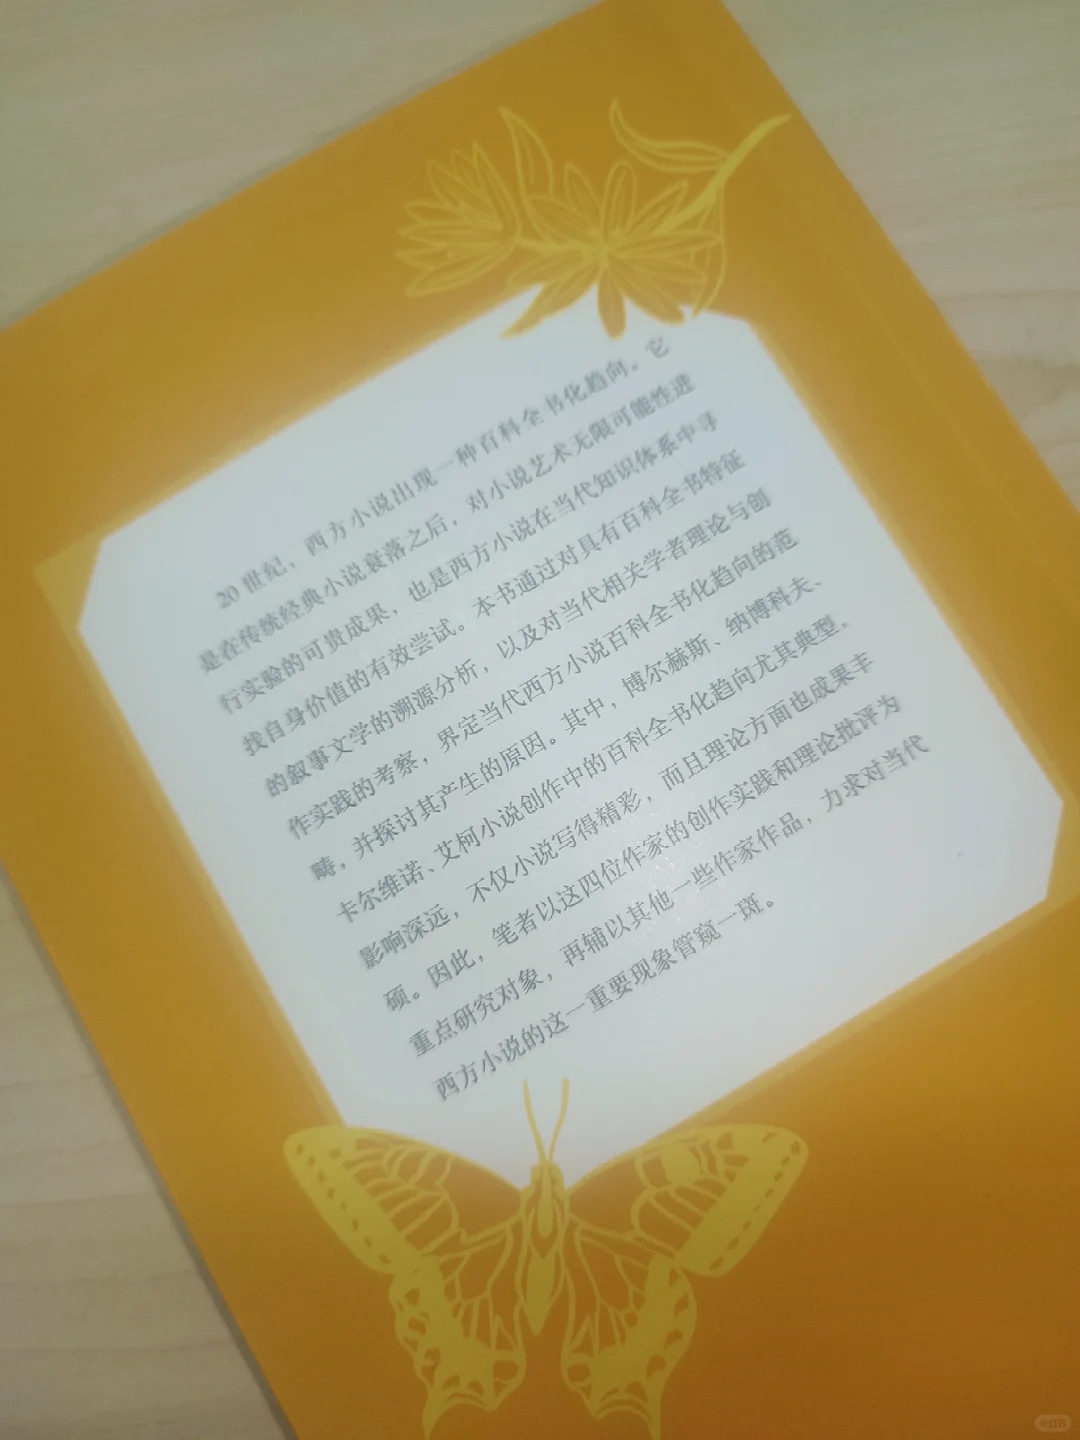 20 世纪，西方小说出现一种百科全书化趋向。它
是在传统经典小说衰落之后，对小说艺术无限可能性进
行实验的可贵成果，也是西方小说在当代知识体系中寻
找自身价值的有效尝试。本书通过对具有百科全书特征
的叙事文学的溯源分析，以及对当代相关学者理论与创
作实践的考察，界定当代西方小说百科全书化趋向的范
畴，并探讨其产生的原因。其中，博尔赫斯、纳博科夫、
卡尔维诺、艾柯小说创作中的百科全书化趋向尤其典型，
影响深远，不仅小说写得精彩，而且理论方面也成果丰
硕。因此，笔者以这四位作家的创作实践和理论批评为
重点研究对象，再辅以其他一些作家作品，力求对当代
西方小说的这一重要现象管窥一斑。